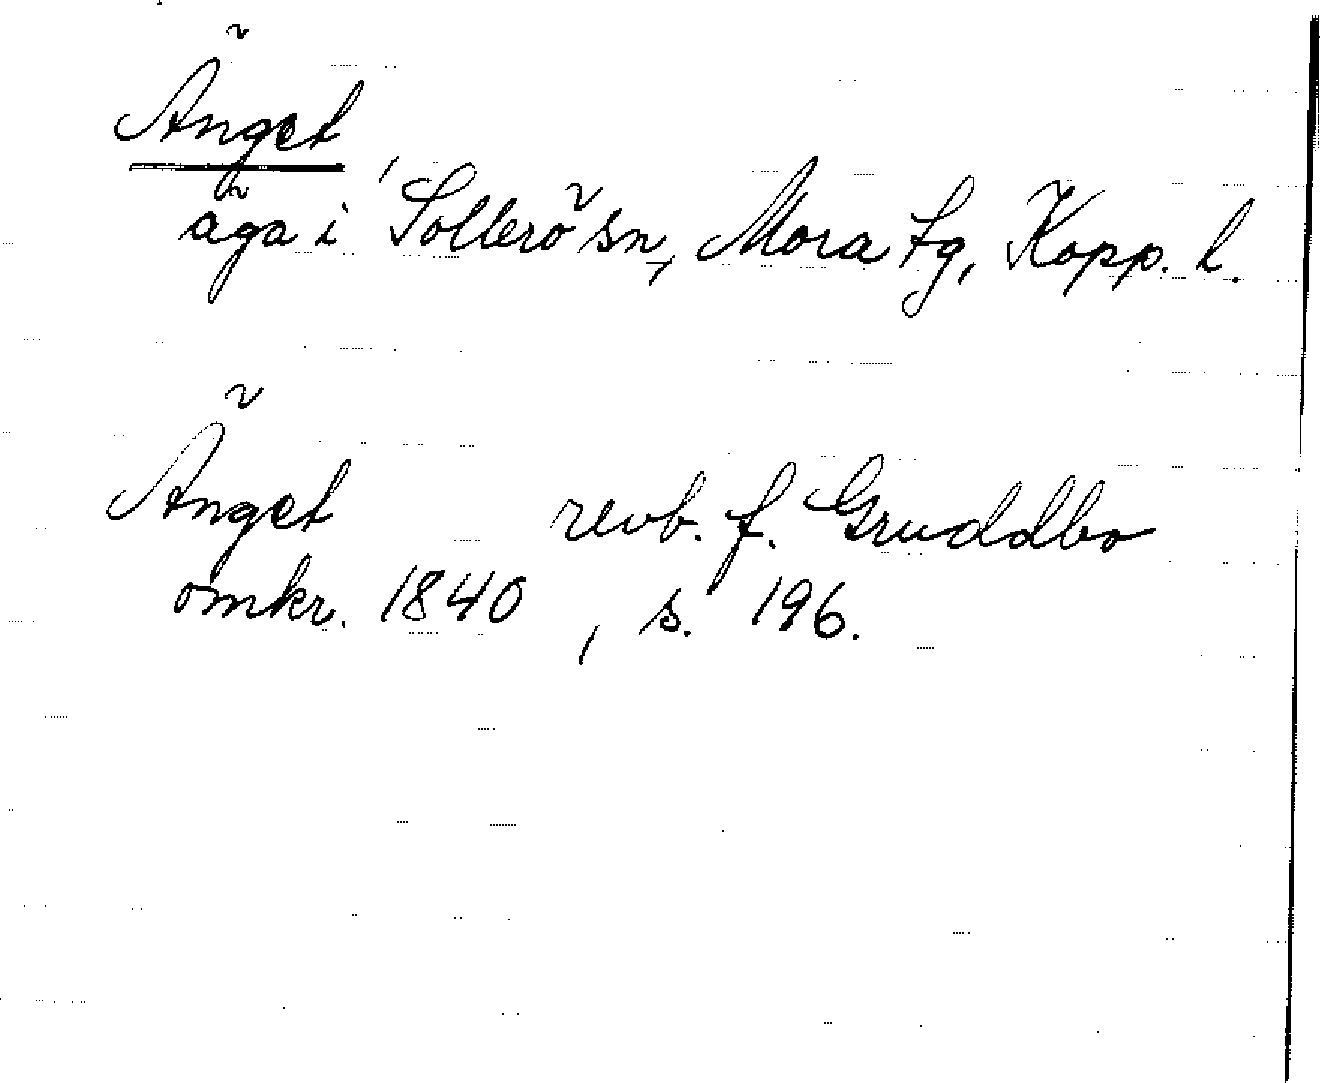 Änget
äga i Sollerö sn, Mora tg, Kopp. l.
Änget revb. f. Gruddbo
omkr. 1840, s. 196.